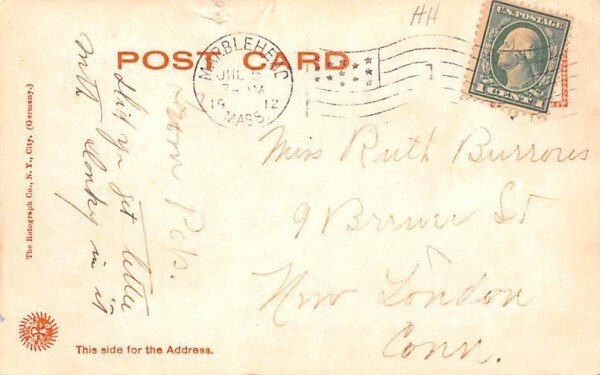 POST CARD
MARBLEHEAD
JUL 5
7-PM
1912
MASS.
U.S. POSTAGE
1 CENT 1
HH
Miss Ruth Burrows
9 Brewer St
New London
Conn.
did you get letter
with in it
from
The Rotograph Co., N. Y., City. (Germany.)
This side for the Address.